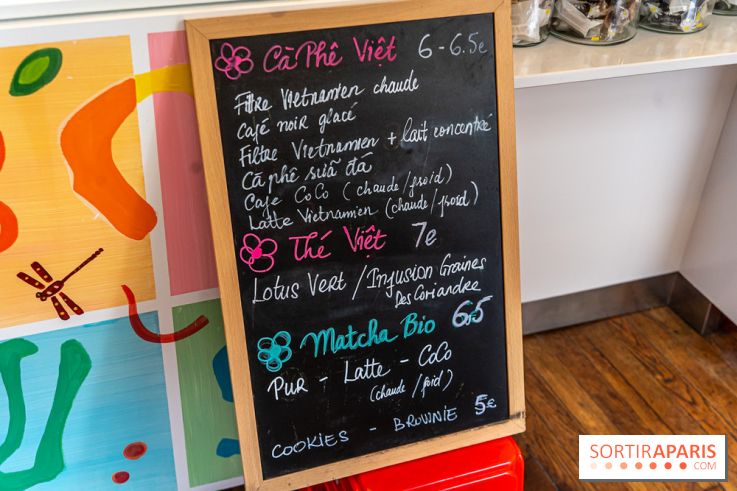 Cà Phê Việt 6 - 6.5€
Filtre Vietnamien chaude
Café noir glacé
Filtre Vietnamien + lait concentré
Cà phê sữa đá
Cafe CoCo (chaude/froid)
Latte Vietnamien (chaude/froid)
Thé Việt 7€
Lotus Vert / Infusion Graines
Des Coriandre
Matcha Bio 6.5
Pur - Latte - CoCo
(chaude/froid)
COOKIES - BROWNIE 5€
SORTIRAPARIS
.COM